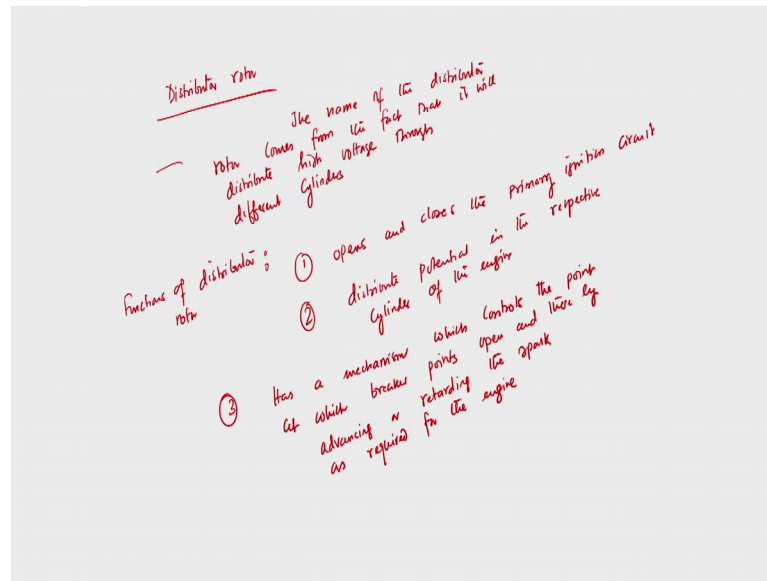 Distributor rotor
The name of the distributor
rotor comes from the fact that it will
distribute high voltage through
different cylinders
Functions of distributor rotor :
① opens and closes the primary ignition circuit
② distribute potential in the respective
cylinder of the engine
③ Has a mechanism which controls the point
at which breaker points open and there by
advancing or retarding the spark
as required for the engine